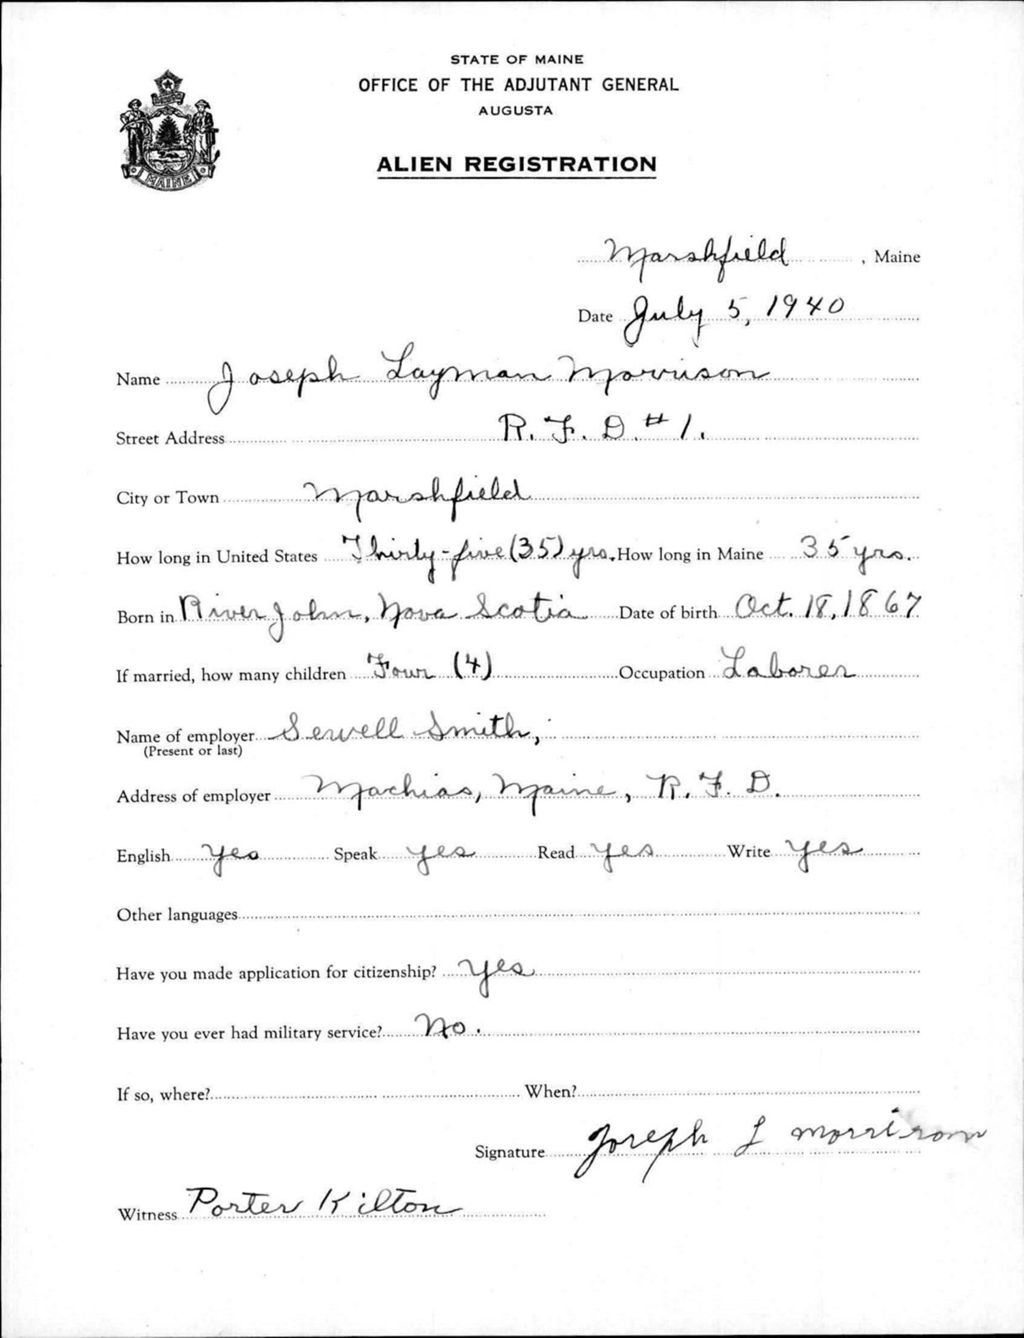 STATE OF MAINE
OFFICE OF THE ADJUTANT GENERAL
AUGUSTA
ALIEN REGISTRATION
MAINE
Marshfield, Maine
Date July 5, 1940
Name Joseph Layman Morrison
Street Address R. F. D. # 1.
City or Town Marshfield
How long in United States Thirty-five (35) yrs. How long in Maine 35 yrs.
Born in River John, Nova Scotia Date of birth Oct. 18, 1867
If married, how many children Four (4) Occupation Laborer
Name of employer Sewell Smith,
(Present or last)
Address of employer Machias, Maine, R. F. D.
English Yes Speak yes Read yes Write yes
Other languages
Have you made application for citizenship? Yes
Have you ever had military service? No.
If so, where? When?
Signature Joseph L Morrison
Witness Porter Kilton